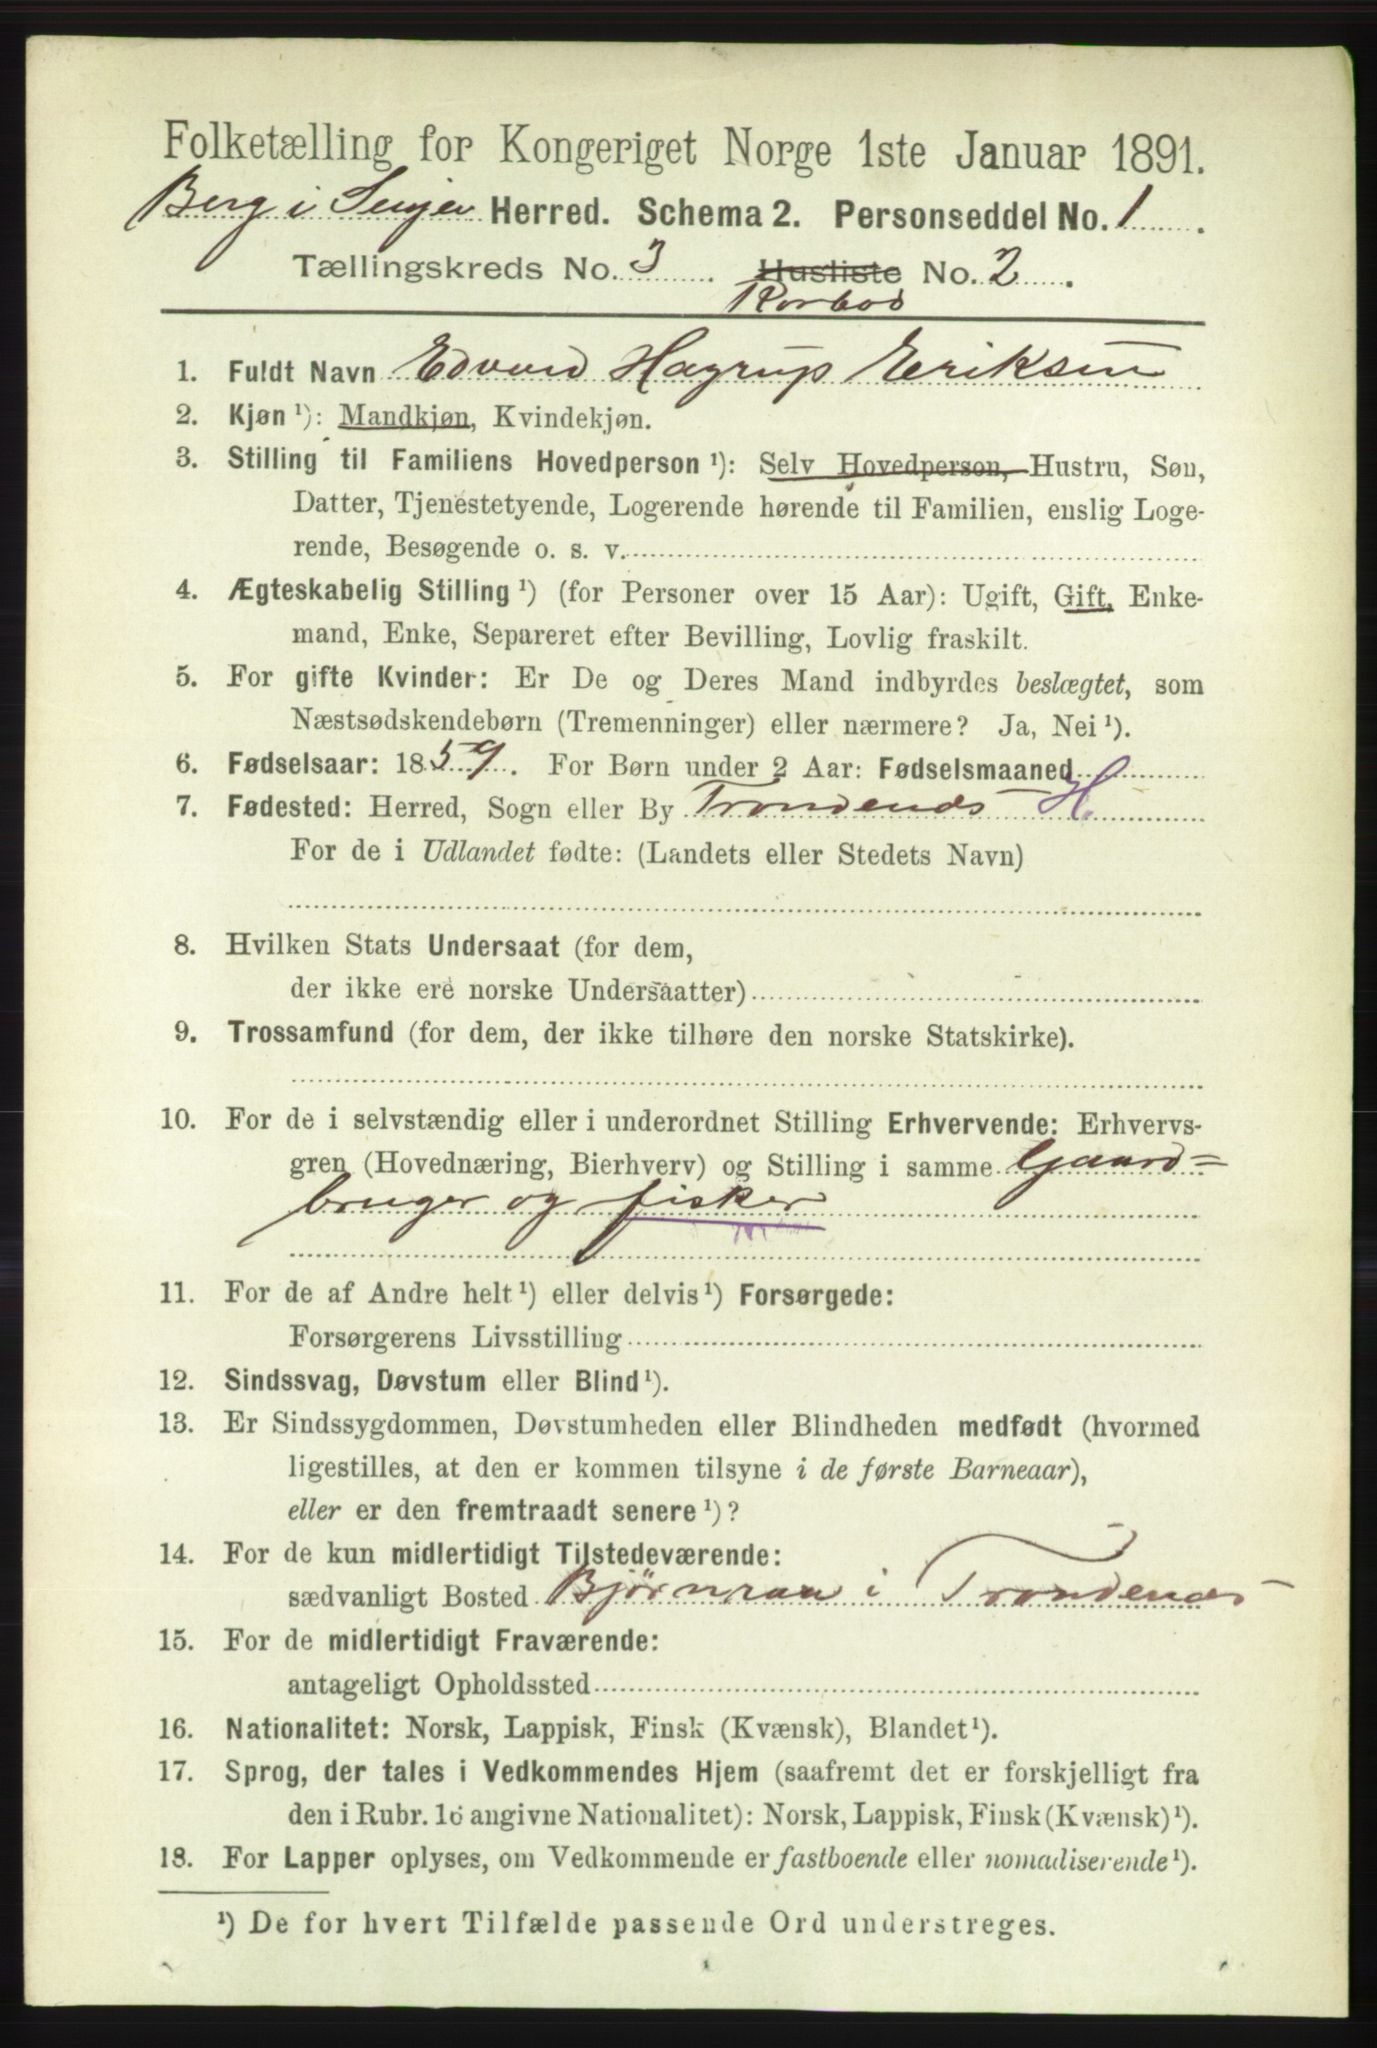 Folketælling for Kongeriget Norge 1ste Januar 1891.
Berg i Senjen Herred. Schema 2. Personseddel No. 1.
Tællingskreds No. 3. Husliste No. 2.
Rorbod
1. Fuldt Navn Edvard Hagrup Eriksen
2. Kjøn ¹): Mandkjøn, Kvindekjøn.
3. Stilling til Familiens Hovedperson ¹): Selv Hovedperson, Hustru, Søn,
Datter, Tjenestetyende, Logerende hørende til Familien, enslig Loge-
rende, Besøgende o. s. v.
4. Ægteskabelig Stilling ¹) (for Personer over 15 Aar): Ugift, Gift, Enke-
mand, Enke, Separeret efter Bevilling, Lovlig fraskilt.
5. For gifte Kvinder: Er De og Deres Mand indbyrdes beslægtet, som
Næstsødskendebørn (Tremenninger) eller nærmere? Ja, Nei ¹).
6. Fødselsaar: 1859. For Børn under 2 Aar: Fødselsmaaned
7. Fødested: Herred, Sogn eller By Trondenæs H.
For de i Udlandet fødte: (Landets eller Stedets Navn)
8. Hvilken Stats Undersaat (for dem,
der ikke ere norske Undersaatter)
9. Trossamfund (for dem, der ikke tilhøre den norske Statskirke).
10. For de i selvstændig eller i underordnet Stilling Erhvervende: Erhvervs-
gren (Hovednæring, Bierhverv) og Stilling i samme Gaard=
bruger og fisker
11. For de af Andre helt ¹) eller delvis ¹) Forsørgede:
Forsørgerens Livsstilling
12. Sindssvag, Døvstum eller Blind ¹).
13. Er Sindssygdommen, Døvstumheden eller Blindheden medfødt (hvormed
ligestilles, at den er kommen tilsyne i de første Barneaar),
eller er den fremtraadt senere ¹)?
14. For de kun midlertidigt Tilstedeværende:
sædvanligt Bosted Bjørnraa i Trondenæs
15. For de midlertidigt Fraværende:
antageligt Opholdssted
16. Nationalitet: Norsk, Lappisk, Finsk (Kvænsk), Blandet ¹).
17. Sprog, der tales i Vedkommendes Hjem (saafremt det er forskjelligt fra
den i Rubr. 16 angivne Nationalitet): Norsk, Lappisk, Finsk (Kvænsk) ¹).
18. For Lapper oplyses, om Vedkommende er fastboende eller nomadiserende ¹).
¹) De for hvert Tilfælde passende Ord understreges.